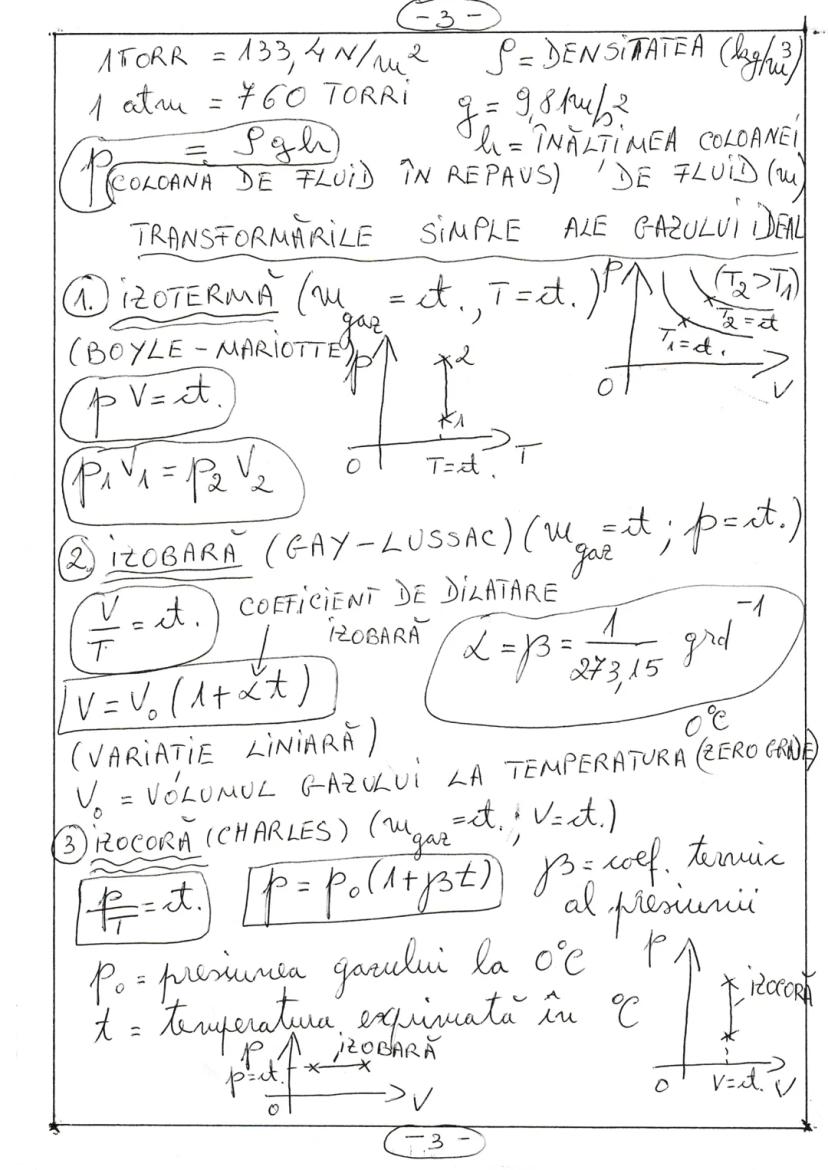 - 3 -
1 TORR = 133,4 N/m² ρ = DENSITATEA (kg/m³)
1 atm = 760 TORRI g = 9,81 m/s²
p = ρgh h = ÎNĂLȚIMEA COLOANEI
(COLOANĂ DE FLUID ÎN REPAUS) DE FLUID (m)
TRANSFORMĂRILE SIMPLE ALE GAZULUI IDEAL
1. IZOTERMĂ (m gaz = ct., T = ct.) p (T₂ > T₁)
T₂ = ct
T₁ = ct.
O V
(BOYLE - MARIOTTE) p 2
pV = ct. 1
p₁V₁ = p₂V₂ O T = ct. T
2. IZOBARĂ (GAY - LUSSAC) (m gaz = ct ; p = ct.)
V/T = ct. COEFICIENT DE DILATARE
IZOBARĂ α = β = 1/273,15 grd⁻¹
V = V₀(1 + αt)
0°C
(VARIAȚIE LINIARĂ)
V₀ = VOLUMUL GAZULUI LA TEMPERATURA (ZERO GRADE)
3 IZOCORĂ (CHARLES) (m gaz = ct. ; V = ct.)
p/T = ct. p = p₀(1 + βt) β = coef. termic
al presiunii
p₀ = presiunea gazului la 0°C p IZOCORĂ
t = temperatura exprimată în °C
p IZOBARĂ
p = ct. O V = ct. V
O V
- 3 -